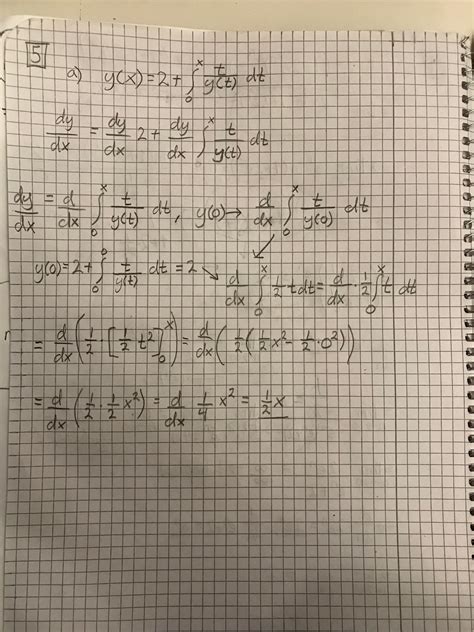 5
a) y(x) = 2 + ∫₀ˣ t/y(t) dt
dy/dx = dy/dx 2 + dy/dx ∫₀ˣ t/y(t) dt
dy/dx = d/dx ∫₀ˣ t/y(t) dt, y(0) → d/dx ∫₀ˣ t/y(0) dt
y(0) = 2 + ∫₀⁰ t/y(t) dt = 2 ↘ d/dx ∫₀ˣ 1/2 t dt = d/dx · 1/2 ∫₀ˣ t dt
= d/dx (1/2 · [1/2 t²]₀ˣ) = d/dx (1/2 (1/2 x² - 1/2 · 0²))
= d/dx (1/2 · 1/2 x²) = d/dx 1/4 x² = 1/2 x